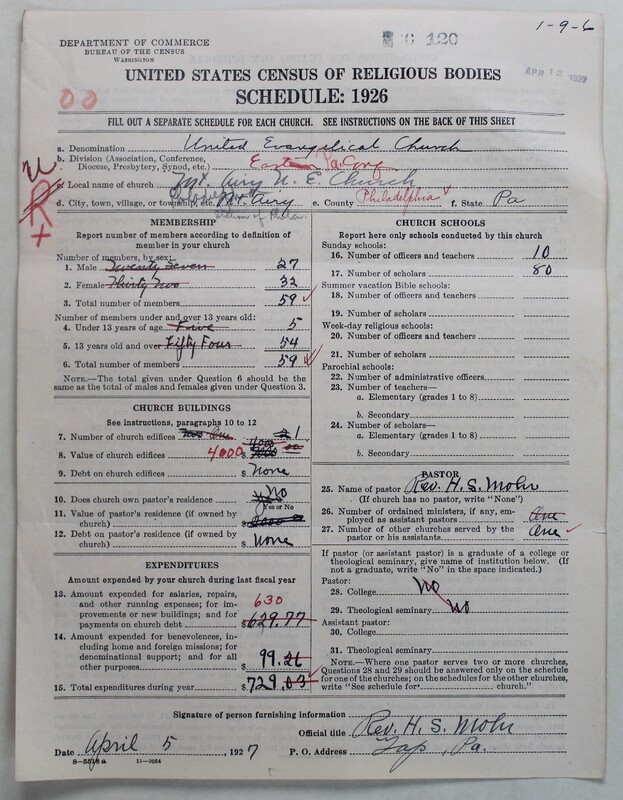 1-9-6
DEPARTMENT OF COMMERCE
BUREAU OF THE CENSUS
WASHINGTON
120
APR 12 1927
UNITED STATES CENSUS OF RELIGIOUS BODIES
SCHEDULE: 1926
FILL OUT A SEPARATE SCHEDULE FOR EACH CHURCH. SEE INSTRUCTIONS ON THE BACK OF THIS SHEET
a. Denomination United Evangelical Church
b. Division (Association, Conference, Diocese, Presbytery, Synod, etc.) East Pa. Conf
c. Local name of church Mt. Airy U. E. Church
d. City, town, village, or township, etc. Mt Airy e. County Philadelphia f. State Pa
section of Phila.
MEMBERSHIP
Report number of members according to definition of member in your church
Number of members, by sex:
1. Male Twenty Seven 27
2. Female Thirty Two 32
3. Total number of members 59
Number of members under and over 13 years old:
4. Under 13 years of age Five 5
5. 13 years old and over Fifty Four 54
6. Total number of members 59
NOTE.—The total given under Question 6 should be the same as the total of males and females given under Question 3.
CHURCH BUILDINGS
See instructions, paragraphs 10 to 12
7. Number of church edifices One 1
8. Value of church edifices 4000 $
9. Debt on church edifices $ None
10. Does church own pastor's residence No
Yes or No
11. Value of pastor's residence (if owned by church) $
12. Debt on pastor's residence (if owned by church) $ None
EXPENDITURES
Amount expended by your church during last fiscal year
13. Amount expended for salaries, repairs, and other running expenses; for improvements or new buildings; and for payments on church debt 630 $ 629.77
14. Amount expended for benevolences, including home and foreign missions; for denominational support; and for all other purposes 99.26
15. Total expenditures during year $ 729.03
CHURCH SCHOOLS
Report here only schools conducted by this church
Sunday schools:
16. Number of officers and teachers 10
17. Number of scholars 80
Summer vacation Bible schools:
18. Number of officers and teachers
19. Number of scholars
Week-day religious schools:
20. Number of officers and teachers
21. Number of scholars
Parochial schools:
22. Number of administrative officers
23. Number of teachers—
a. Elementary (grades 1 to 8)
b. Secondary
24. Number of scholars—
a. Elementary (grades 1 to 8)
b. Secondary
PASTOR
25. Name of pastor Rev. H. S. Mohr
(If church has no pastor, write "None")
26. Number of ordained ministers, if any, employed as assistant pastors One
27. Number of other churches served by the pastor or his assistants One
If pastor (or assistant pastor) is a graduate of a college or theological seminary, give name of institution below. (If not a graduate, write "No" in the space indicated.)
Pastor:
28. College No
29. Theological seminary No
Assistant pastor:
30. College
31. Theological seminary
NOTE.—Where one pastor serves two or more churches, Questions 28 and 29 should be answered only on the schedule for one of the churches; on the schedules for the other churches, write "See schedule for church."
Signature of person furnishing information
Official title Rev. H. S. Mohr
Date April 5 1927 P. O. Address Gap, Pa.
8-5518a 11-9054